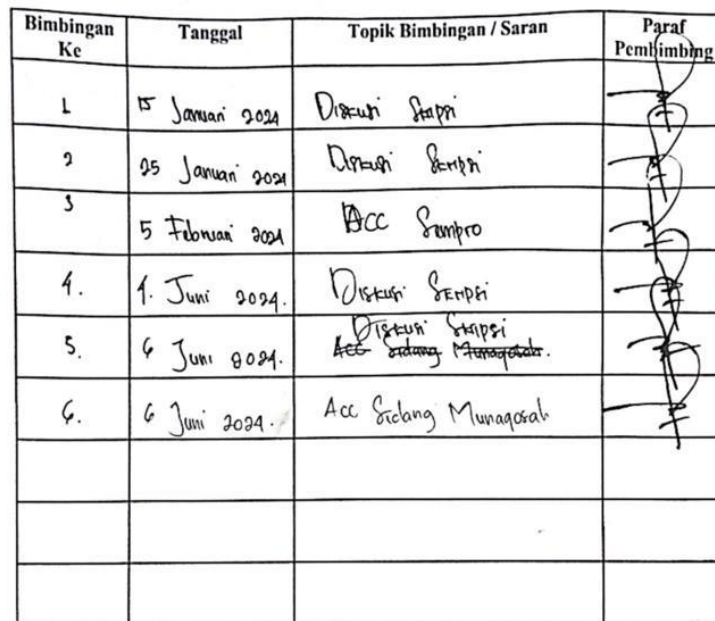 Bimbingan Ke Tanggal Topik Bimbingan / Saran Paraf Pembimbing
1 15 Januari 2024 Diskusi Skripsi
2 25 Januari 2024 Diskusi Skripsi
3 5 Februari 2024 ACC Sempro
4. 4. Juni 2024. Diskusi Skripsi
5. 6 Juni 2024. Diskusi Skripsi
Acc Sidang Munaqosah.
6. 6 Juni 2024. Acc Sidang Munaqosah